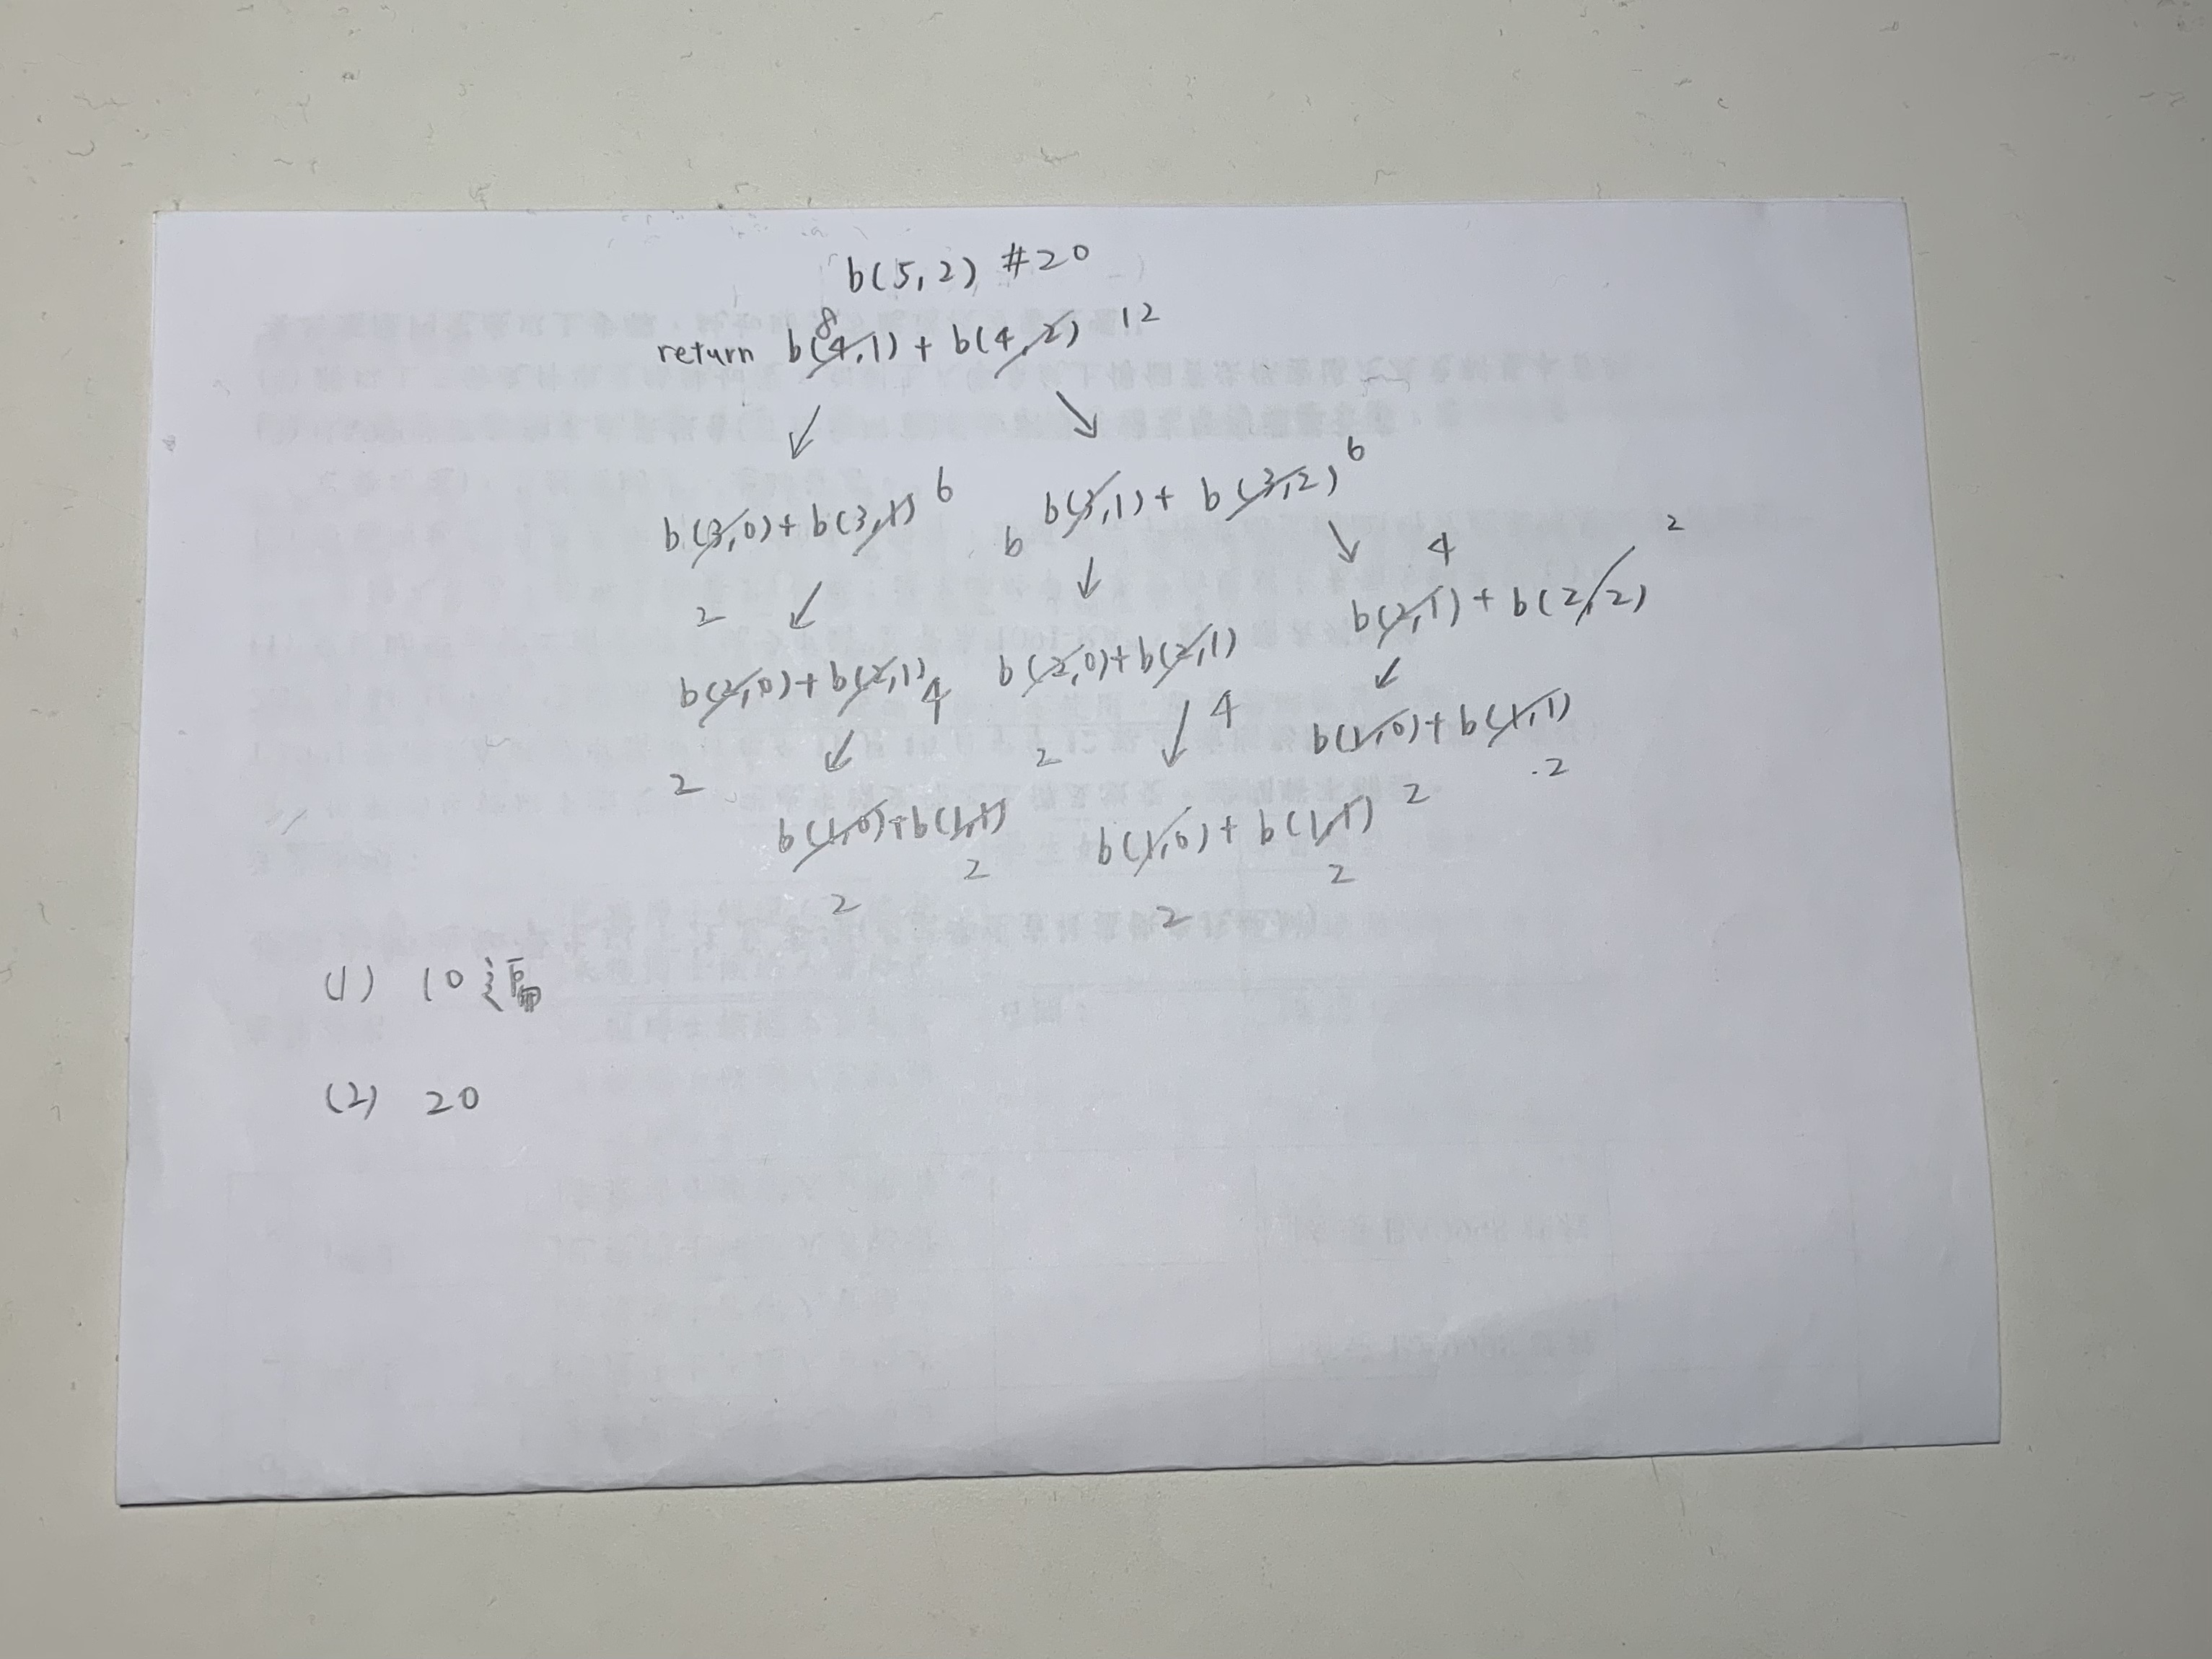 b(5,2) #20
return b(4,1) + b(4,2) 12
8
b(3,0) + b(3,1) 6
b(3,1) + b(3,2) 6
2
6
b(2,0) + b(2,1) 4
b(2,0) + b(2,1)
4
b(2,1) + b(2,2)
2
2
2
4
b(1,0) + b(1,1)
2
2
b(1,0) + b(1,1)
2
2
b(1,0) + b(1,1)
2
2
(1) 10遍
(2) 20